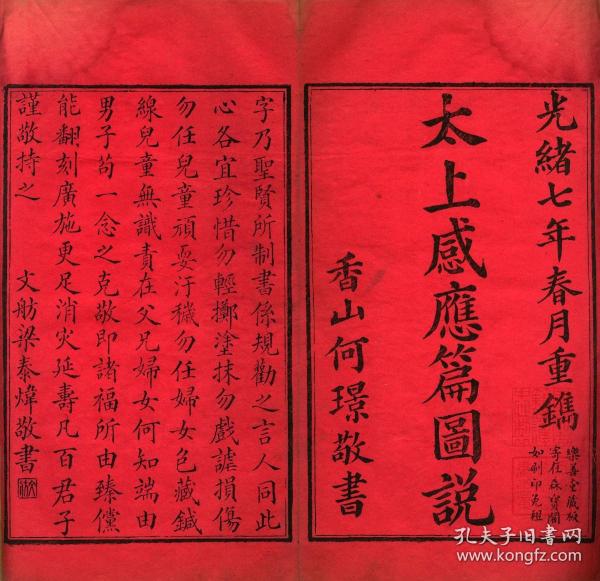 光緒七年春月重鐫
樂善堂藏板
寄在森寶閣
如刷印免租
太上感應篇圖說
香山何璟敬書
字乃聖賢所制書係規勸之言人同此
心各宜珍惜勿輕擲塗抹勿戲謔損傷
勿任兒童頑耍汙穢勿任婦女包藏鍼
線兒童無識責在父兄婦女何知端由
男子苟一念之克敬即諸福所由臻儻
能翻刻廣施更足消灾延壽凡百君子
謹敬持之
文舫梁泰煒敬書
孔夫子旧书网
www.kongfz.com